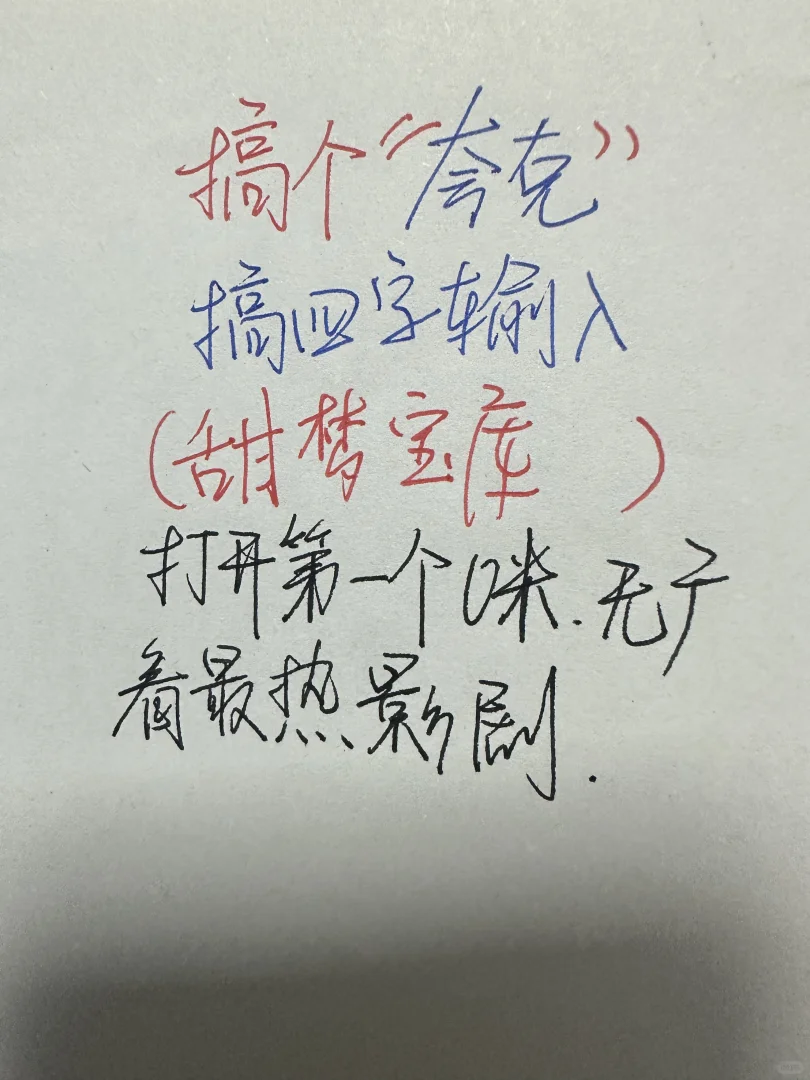 搞个“夸克”
搞四字输入
(甜梦宝库 )
打开第一个口米.无广
看最热影剧.